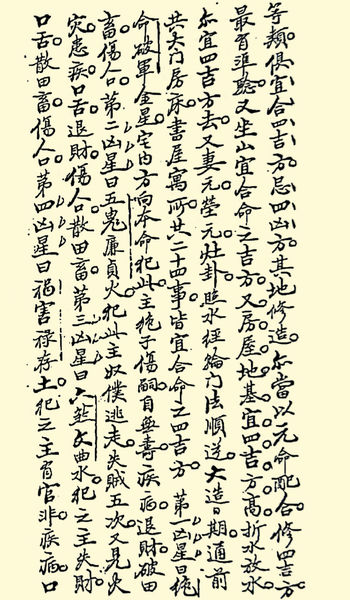 等類俱宜合四吉方忌四凶方其地修造亦當以元命配合修四吉方
最有準驗又坐山宜合命之吉方又房屋地基宜四吉方高折水放水
亦宜四吉方去又妻元塋元灶卦照水經輪門法順送大造日期通前
共大門房床書屋寓所共二十四事皆宜合命之四吉方第一凶星曰絶
命破軍金星宅内方向本命犯此主絶子傷嗣自無壽疾病退財破田
畜傷人口第二凶星曰五鬼廉貞火犯此主奴僕逃走失賊五次又見火
灾患疾口舌退財傷人口散田畜第三凶星曰六煞文曲水犯之主失財
口舌散田畜傷人口第四凶星曰禍害祿存土犯之主有官非疾病口